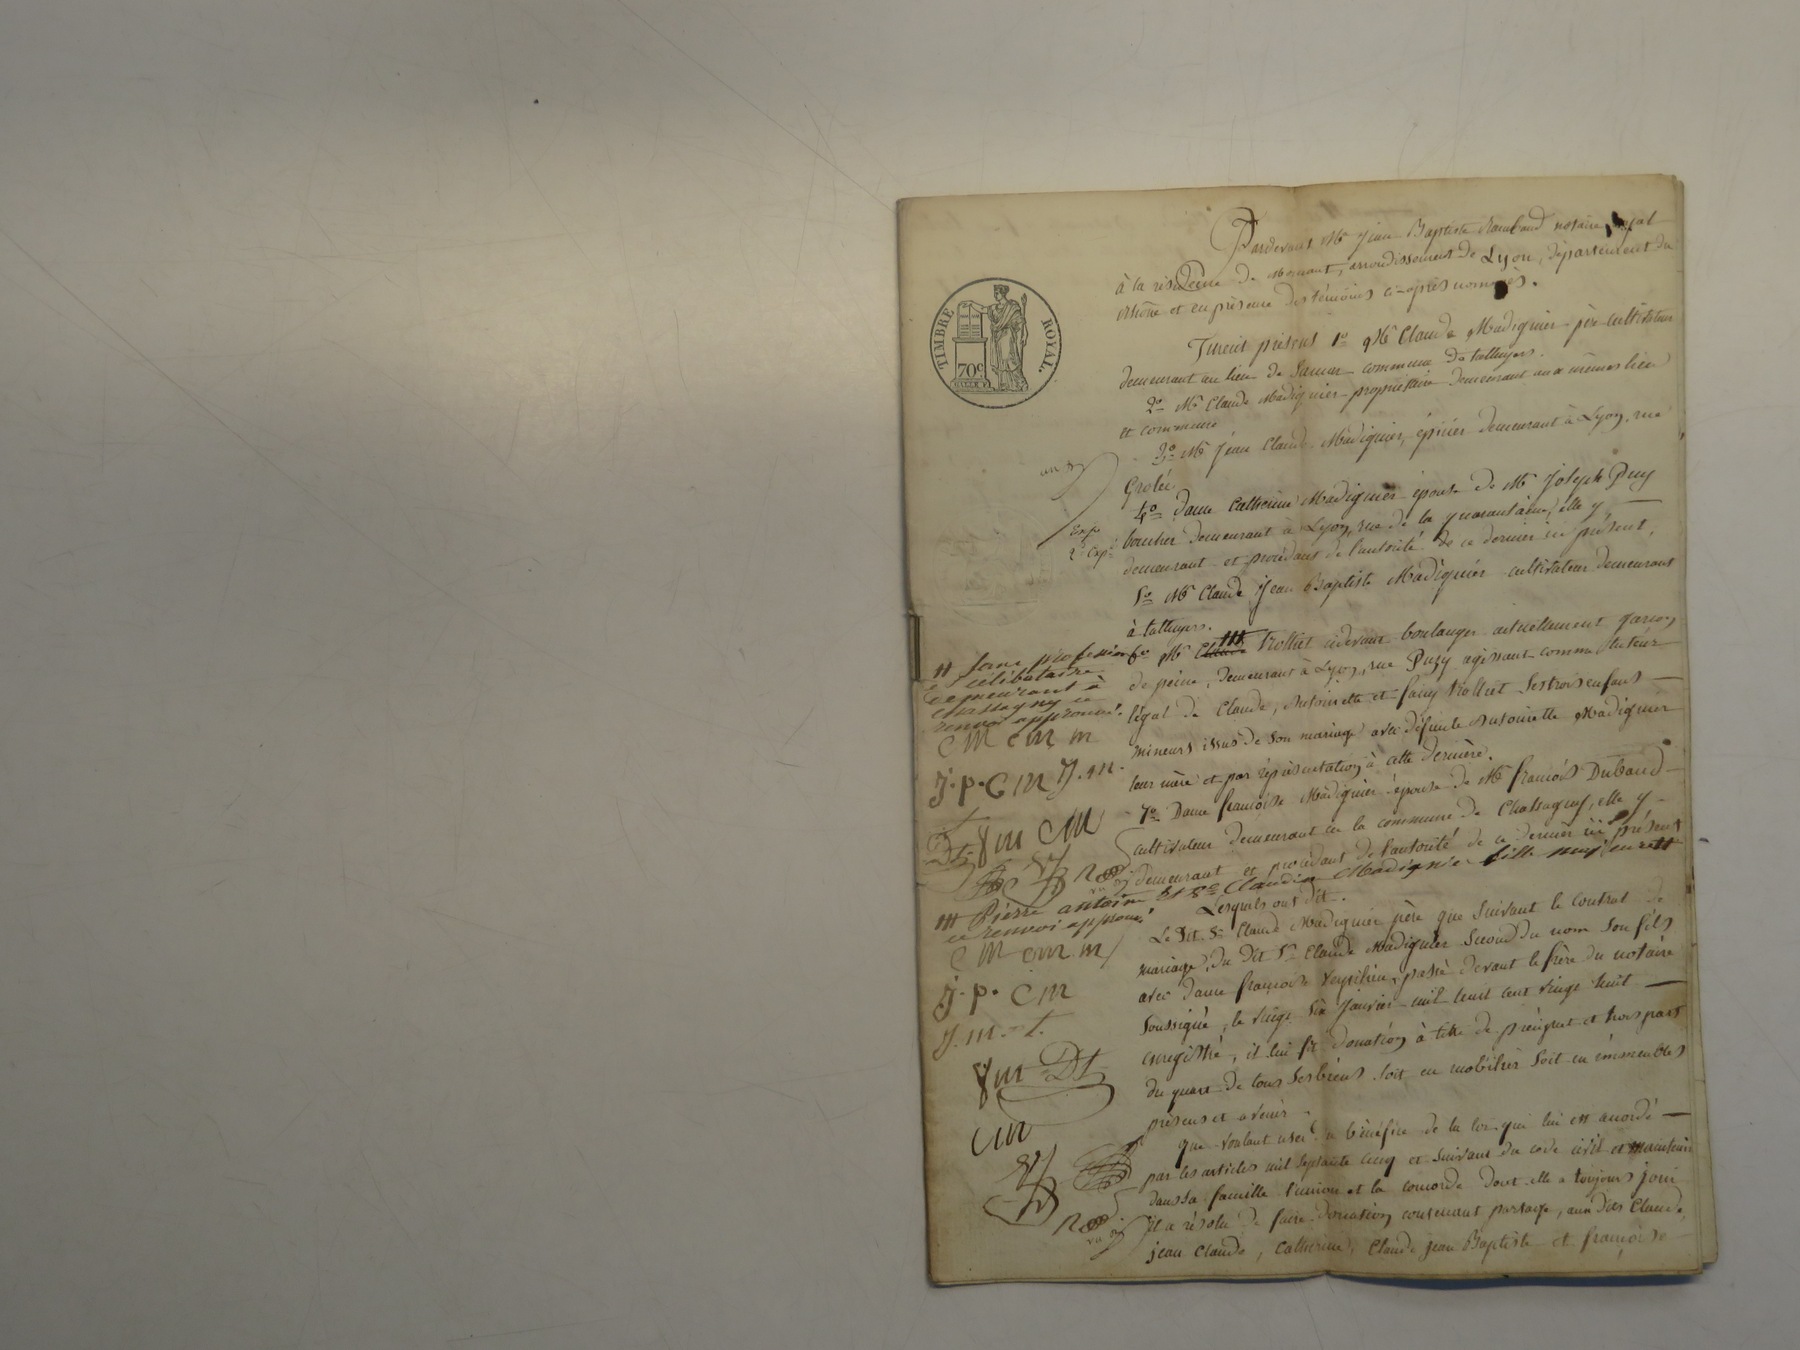 TIMBRE ROYAL.
70c
Pardevant Me Jean Baptiste Rambaud notaire royal
à la résidence de Mornant, arrondissement de Lyon, département du
rhône et en présence des témoins ci-après nommés.
furent présens 1o Mr Claude Madignier père cultivateur
demeurant au lieu de commune de taluyers.
2o Mr Claude Madignier propriétaire demeurant aux mêmes lieu
et commune
3o Mr Jean Claude Madignier, épicier demeurant à Lyon, rue
Grolée
4o Dame Catherine Madignier épouse de Mr Joseph Puy
boucher demeurant à Lyon, rue de la quarantaine, elle y
demeurant et procédant de l'autorité de ce dernier ici présent,
5o Mr Claude Jean Baptiste Madignier cultivateur demeurant
à talluyers.
6o Mr Trolliet cidevant boulanger actuellement garçon
de peine, demeurant à Lyon, rue Puzy agissant comme tuteur
légal de Claude, Antoinette et fany trolliet ses trois enfans
mineurs issus de son mariage avec défunte Antoinette Madignier
leur mère et par réprésentation à cette dernière.
7o Dame françoise Madignier épouse de Mr françois Dubaud
cultivateur demeurant en la commune de Chassagny, elle y
demeurant et procédant de l'autorité de ce dernier ici présent
et 8o Claudine Madignier fille majeure
Lesquels ont dit.
Le dit Sr Claude Madignier père que suivant le contrat de
mariage, du dit Sr Claude Madignier second du nom son fils
avec dame françoise passé devant le frère du notaire
soussigné, le vingt six janvier mil huit cent vingt huit
enregistré, il lui fit donation à titre de préciput et hors part
du quart de tous ses biens soit en mobilier soit en immeubles
présens et avenir.
que voulant user du bénéfice de la loi qui lui est accordé
par les articles mil septante cinq et suivant du code civil et maintenir
dans sa famille l'union et la concorde dont elle a toujours joui
il a résolu de faire donation contenant partage, aux dits Claude,
jean Claude, Catherine, Claude jean Baptiste et françoise
Exp.
2e Exp.
sans profession
célibataire
demeurant à
chassagny ce
renvoi approuvé.
CM CM m
J.P. CM J.m.
fm CM
Pierre antoine
ce renvoi approuvé
CM CM m
J.P. CM
J.m. t.
fm Dt
CM